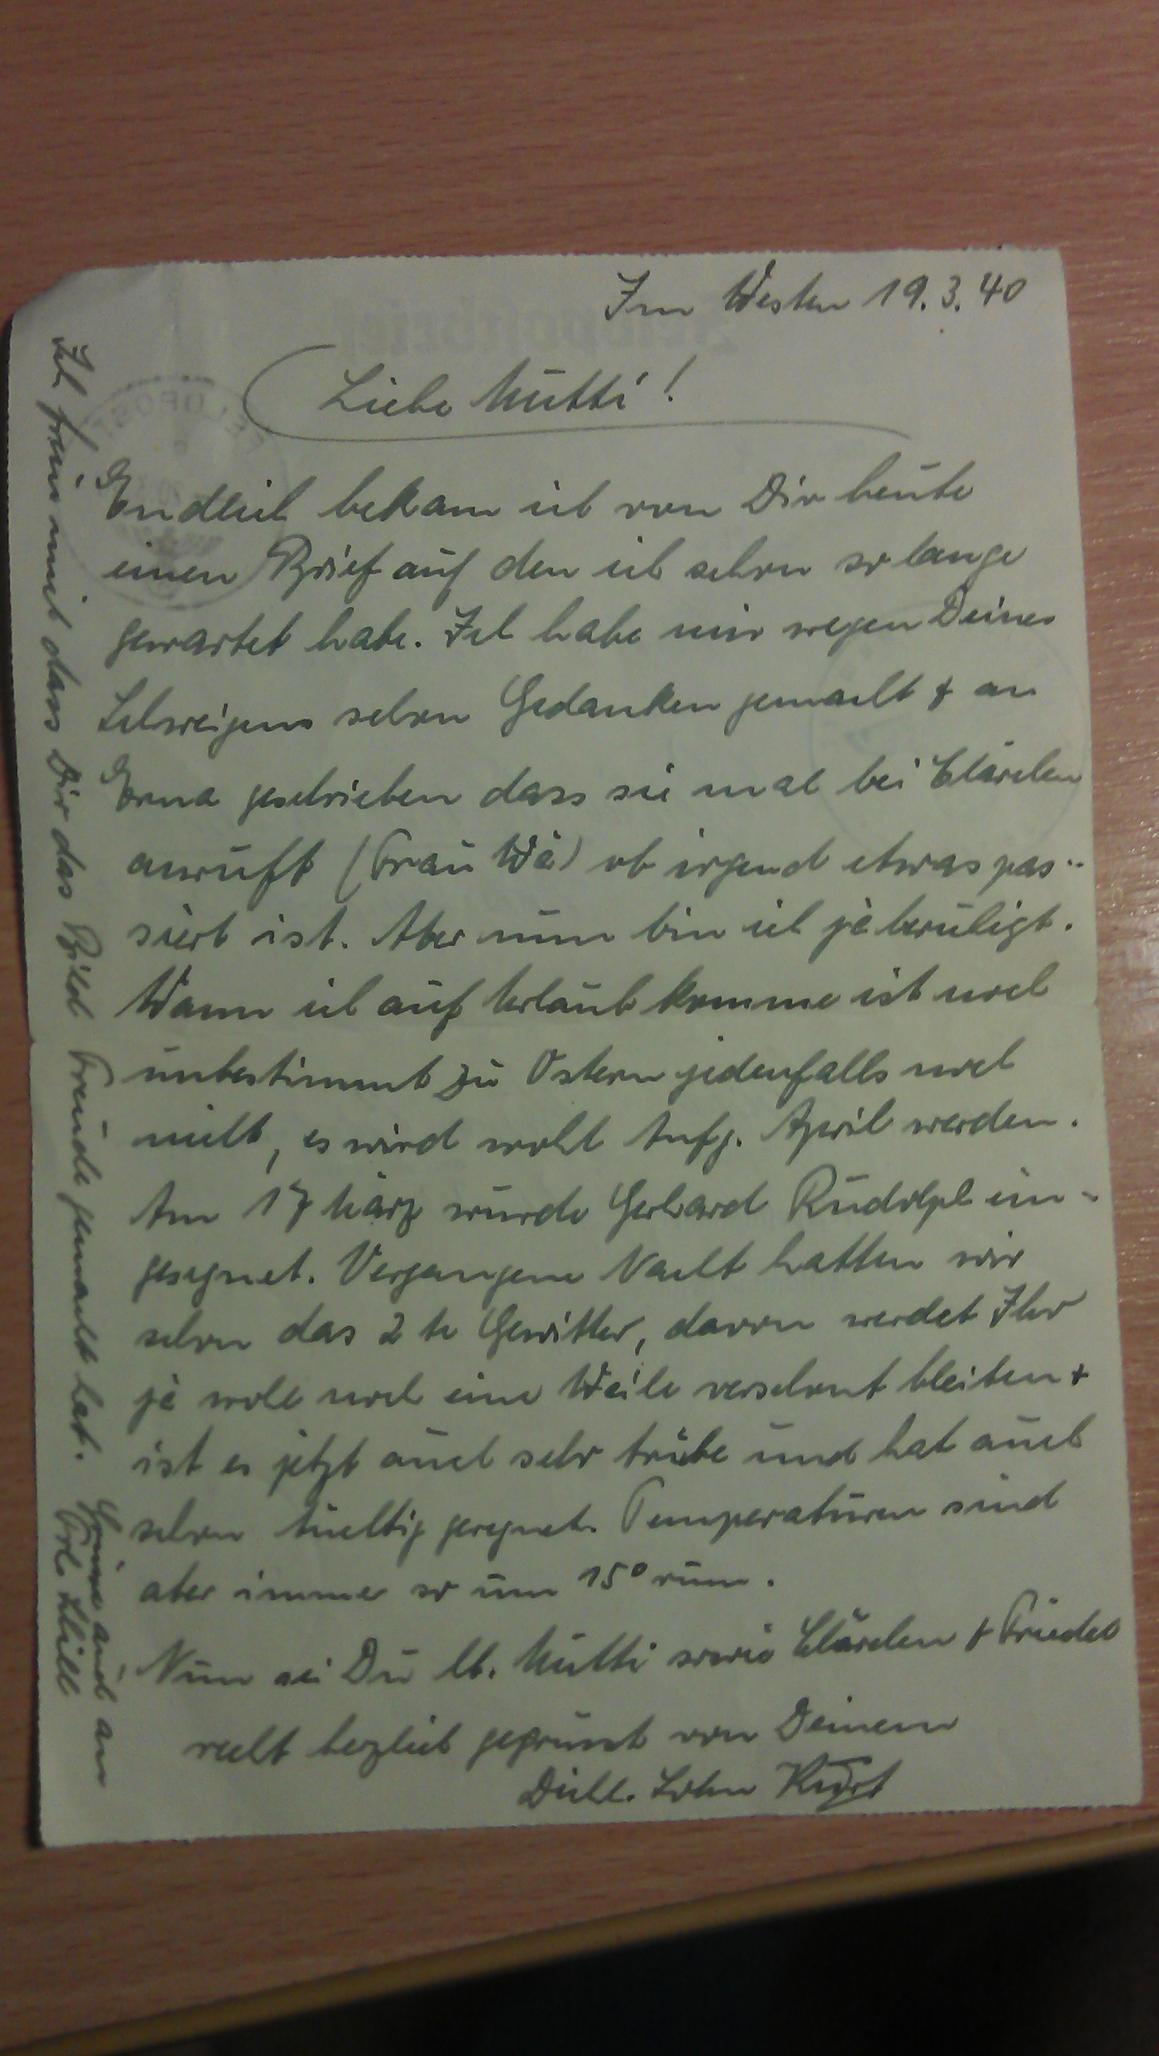 Im Westen 19.3.40
Liebe Mutti!
Endlich bekam ich von Dir heute
einen Brief auf den ich schon so lange
gewartet habe. Ich habe mir wegen Deines
Schweigens schon Gedanken gemacht & an
Erna geschrieben dass sie mal bei Clärchen
anruft (Frau Wä) ob irgend etwas pas-
siert ist. Aber nun bin ich ja beruhigt.
Wann ich auf Urlaub komme ist noch
unbestimmt zu Ostern jedenfalls noch
nicht, es wird wohl Anfg. April werden.
Am 17 März wurde Gerhard Rudolph ein-
gesegnet. Vergangene Nacht hatten wir
schon das 2 te Gewitter, davon werdet Ihr
ja wohl noch eine Weile verschont bleiben +
ist es jetzt auch sehr trübe und hat auch
schon tüchtig geregnet. Temperaturen sind
aber immer so um 15° rum.
Nun sei Du lb. Mutti sowie Clärchen & Friedel
recht herzlich gegrüsst von Deinem
Sohn Kurt
Ich freue mich dass Dir das Bild Freude gemacht hat.
Grüsse auch an
Frl.